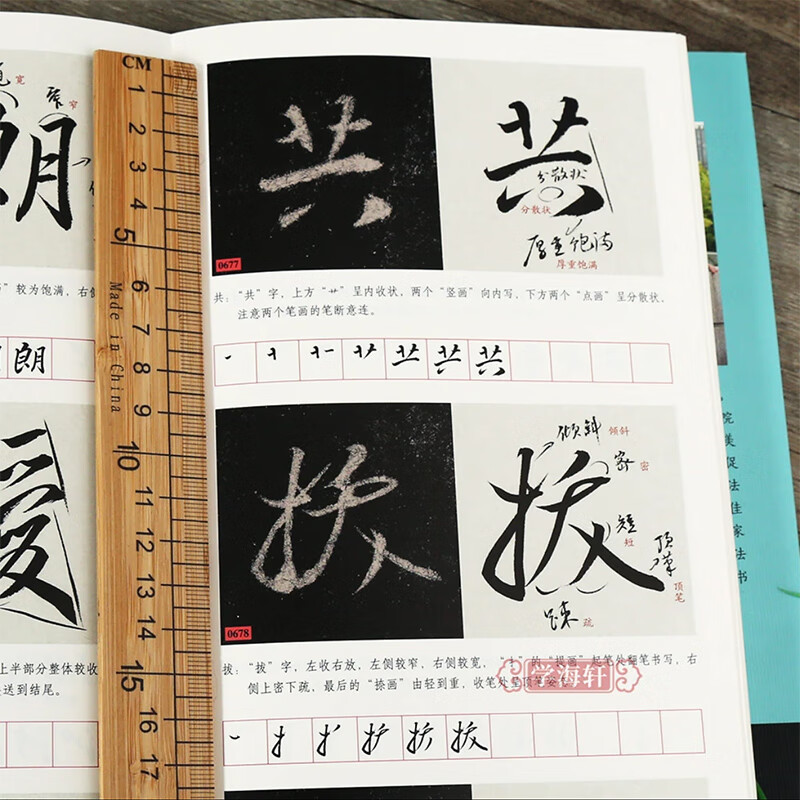 宽
窄
窄
朗
”较为饱满，右侧
朗
爱
上半部分整体较收
送到结尾。
CM
1
2
3
4
5
6
7
8
9
10
11
12
13
14
15
16
17
Made in China
共
0677
共
分散状
分散状
厚重饱满
厚重饱满
共：“共”字，上方“艹”呈内收状，两个“竖画”向内写，下方两个“点画”呈分散状，
注意两个笔画的笔断意连。
共
拔
0678
拔
倾斜
倾斜
密
密
短
短
顶笔
顶笔
疏
疏
拔：“拔”字，左收右放，左侧较窄，右侧较宽，
起笔处翻笔书写，右
侧上密下疏，最后的“捺画”由轻到重，收笔处呈顶笔
学海轩
拔
院
美
促
法
佳
家
法
书